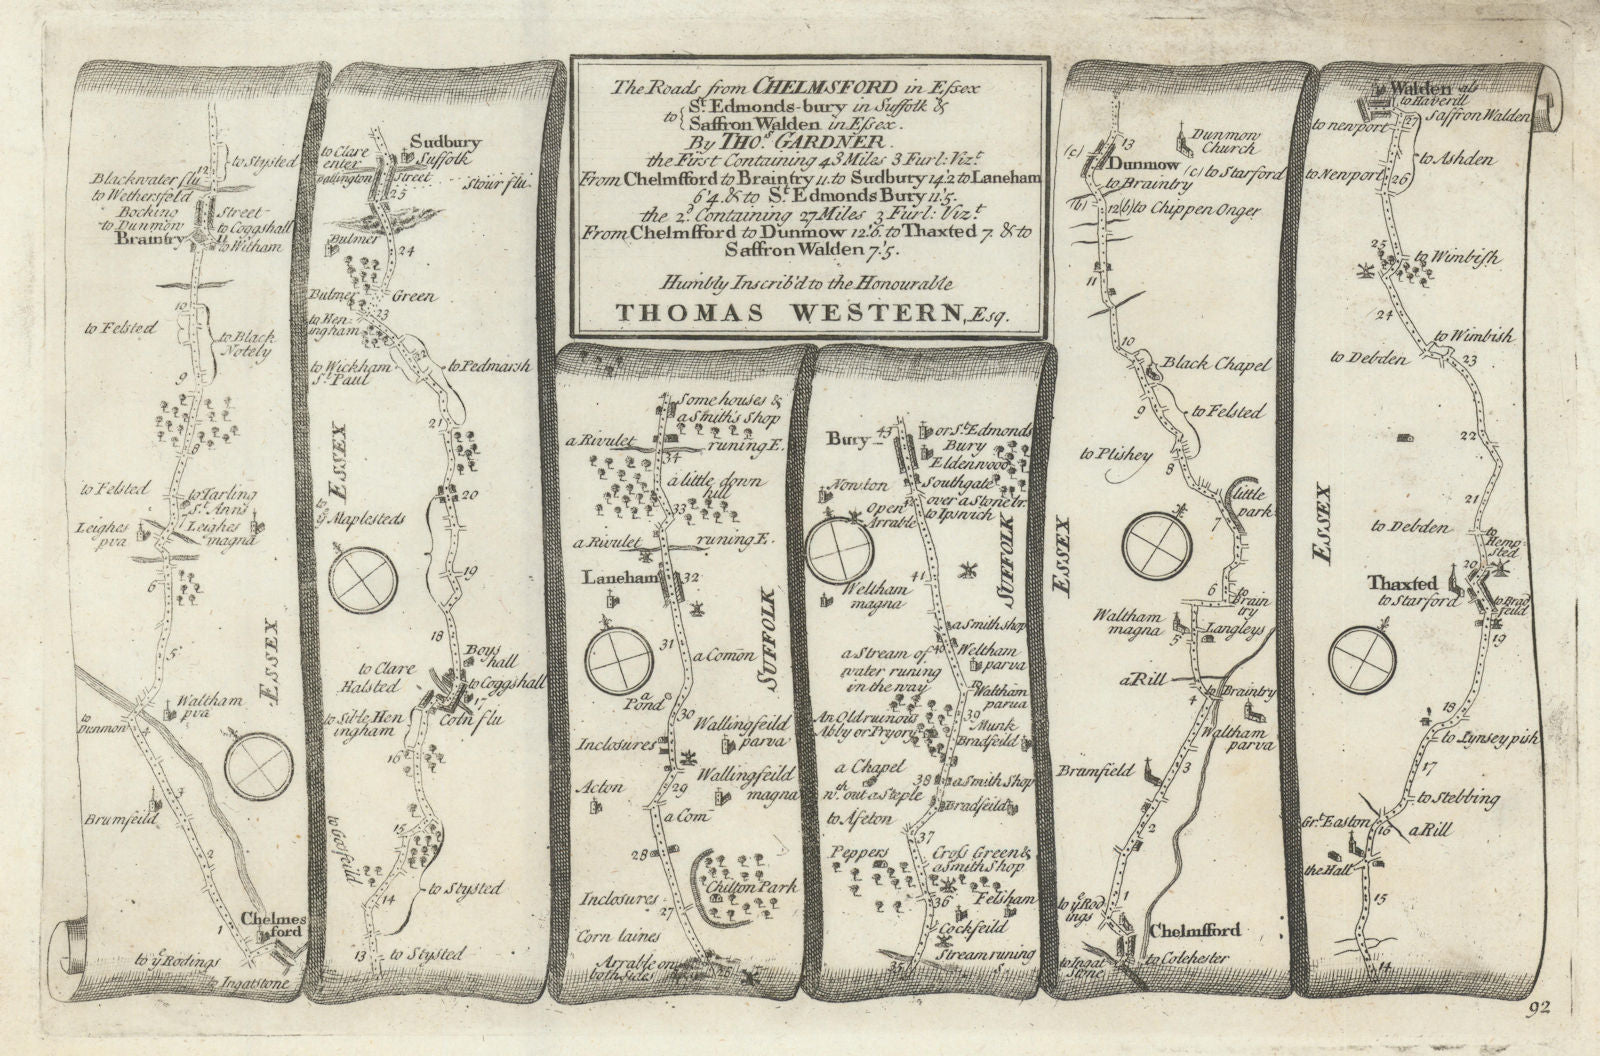 The Roads from CHELMSFORD in Essex
to { St. Edmonds-bury in Suffolk &
Saffron Walden in Essex.
By THOs. GARDNER.
the First Containing 43 Miles 3 Furl: Vizt.
From Chelmsfford to Braintry 11. to Sudbury 14'2 to Laneham
6'4. & to St. Edmonds Bury 11'5.
the 2d. Containing 27 Miles 3 Furl: Vizt.
From Chelmsfford to Dunmow 12'6. to Thaxted 7. & to
Saffron Walden 7'5.
Humbly Inscrib'd to the Honourable
THOMAS WESTERN, Esq.
to Stysted
12
Blackwater flu
to Wethersfeld
Bocking
Street
to Dunmow
to Coggshall
Braintry
11
to Witham
10
to Felsted
to Black
Notely
9
8
to Felsted
to Tarling
St. Anns
Leighes
pva
Leighes
magna
6
5
ESSEX
to
Dunmow
Waltham
pva
4
3
Brumfeild
2
1
Chelmes
ford
to ye Rodings
to Ingatstone
Sudbury
Suffolk
to Clare
enter
Ballington
Street
Stour flu
25
Bulmer
24
Bulmer
Green
to Hen-
ingham
23
to Wickham
St. Paul
to Pedmarsh
21
ESSEX
20
to
ye Maplesteds
19
18
Boys
hall
to Clare
Halsted
to Coggshall
17
Coln flu
to Sible Hen
ingham
16
15
to Gosfeild
14
to Stysted
13
to Stysted
Some houses &
a Smith's Shop
a Rivulet
runing E.
34
a little down
hill
33
a Rivulet
runing E.
Laneham
32
SUFFOLK
31
a Comon
a
Pond
30
Wallingfeild
parva
Inclosures
Wallingfeild
magna
Acton
29
a Com
28
Chilton Park
Inclosures
27
Corn laines
Arrable on
both Sides
26
Bury
43
or St. Edmonds
Bury
Eldenwood
Southgate
over a Stone br.
to Ipsvich
Nowton
Open
Arrable
SUFFOLK
41
Weltham
magna
a Smith shop
40
Weltham
parva
a Stream of
water runing
in the way
Waltham
parua
39
An Old ruinous
Abby or Pryory
Munk
Bradfeild
a Chapel
nth. out a Steple
38
a Smith Shop
Bradfeild
to Aseton
37
Peppers
Cross Green &
a Smith Shop
36
Felsham
Cockfeild
Stream runing
s
35
13
Dunmow
Church
(c)
Dunmow
(c) to Starford
to Braintry
(b)
12
(b) to Chippen Onger
11
10
Black Chapel
9
to Felsted
to Plishey
8
little
park
7
ESSEX
6
to
Brain
try
Waltham
magna
5
Langleys
a Rill
to Braintry
4
Waltham
parva
3
Brumfield
2
1
to ye Rod
ings
Chelmsfford
to Ingat
Stone
to Colchester
Walden als
to Haverill
Saffron Walden
to newport
27
to Ashden
to Newport
26
25
to Wimbish
24
to Wimbish
to Debden
23
22
21
to Debden
to
Hemp
sted
ESSEX
20
Thaxted
to Starford
to Brad
feild
19
18
to Lynsey pish
17
to Stebbing
Grt. Easton
16
a Rill
the Hall
15
14
92